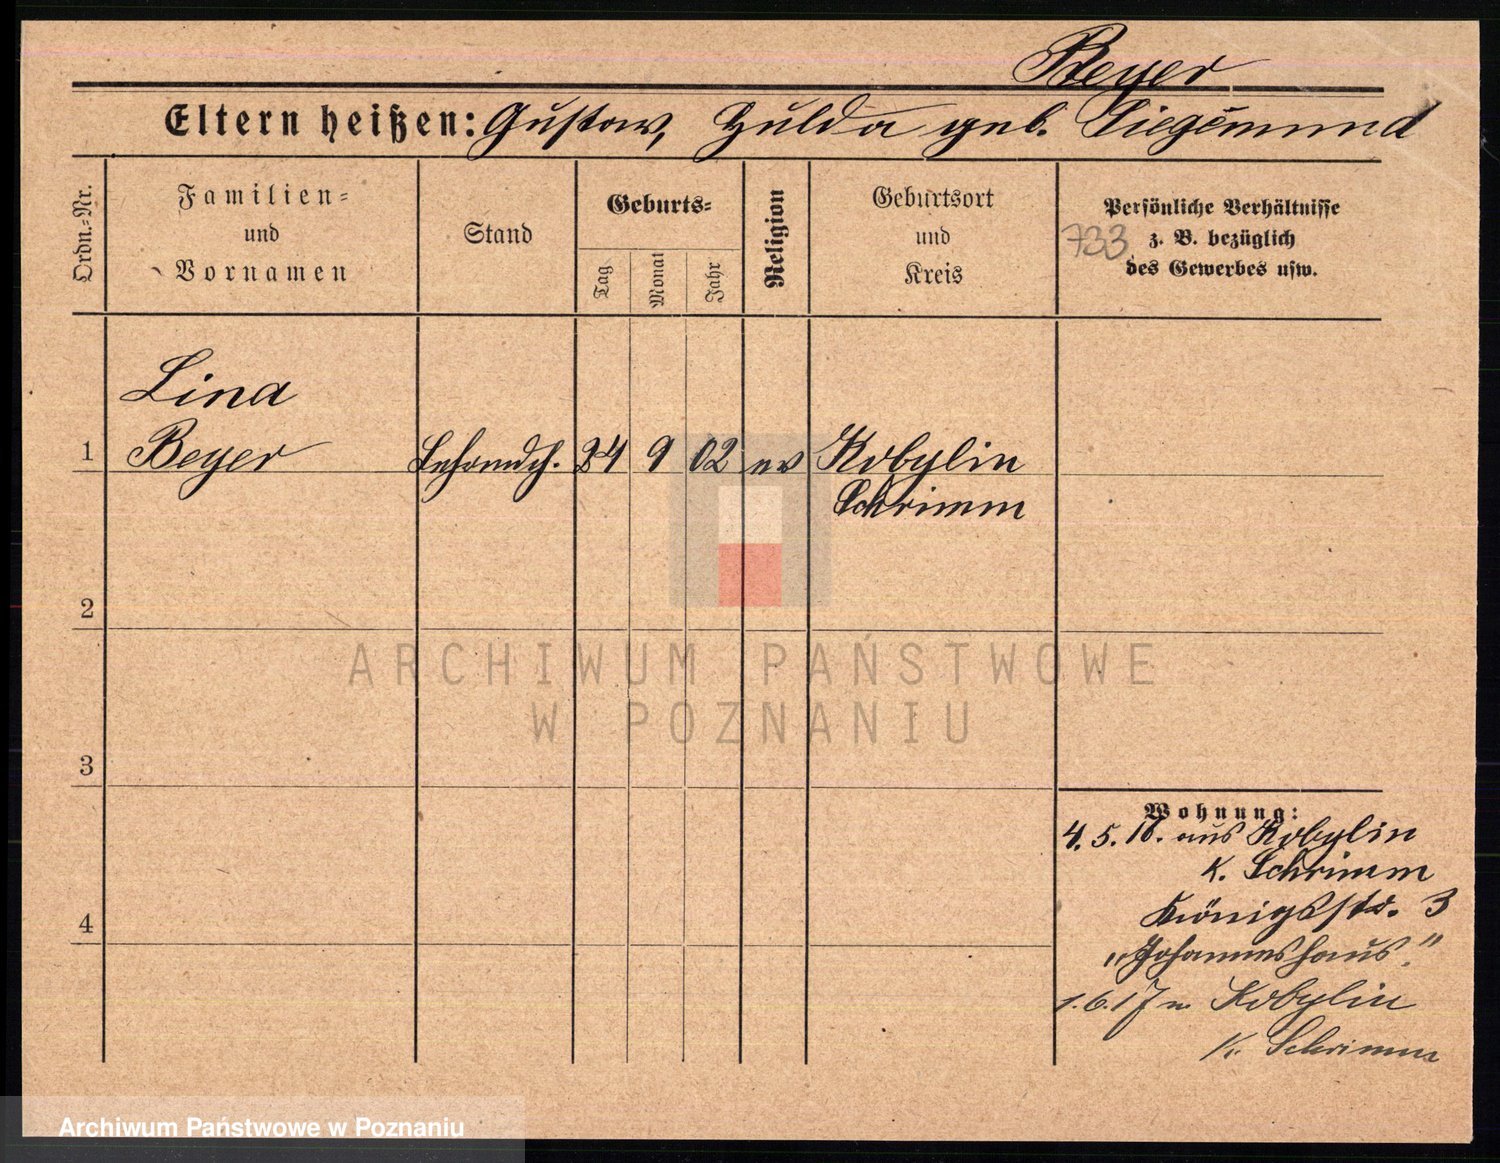 Beyer
Eltern heißen: Gustav, Hulda geb. Siegemund
Ordn.-Nr.
Familien-
und
Vornamen
Stand
Geburts-
Tag
Monat
Jahr
Religion
Geburtsort
und
Kreis
733
Persönliche Verhältnisse
z. B. bezüglich
des Gewerbes usw.
Lina
1 Beyer 24 9 02 ev Kobylin
Schrimm
2
3
4
Wohnung:
4. 5. 16. aus Kobylin
K. Schrimm
Königsstr. 3
„Johanneshaus."
1.6.17 n. Kobylin
K. Schrimm
ARCHIWUM PAŃSTWOWE
W POZNANIU
Archiwum Państwowe w Poznaniu